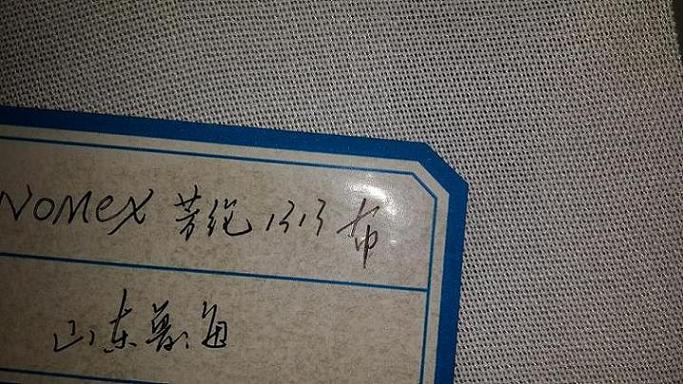 NOMeX 芳纶1313布
山东鲁海